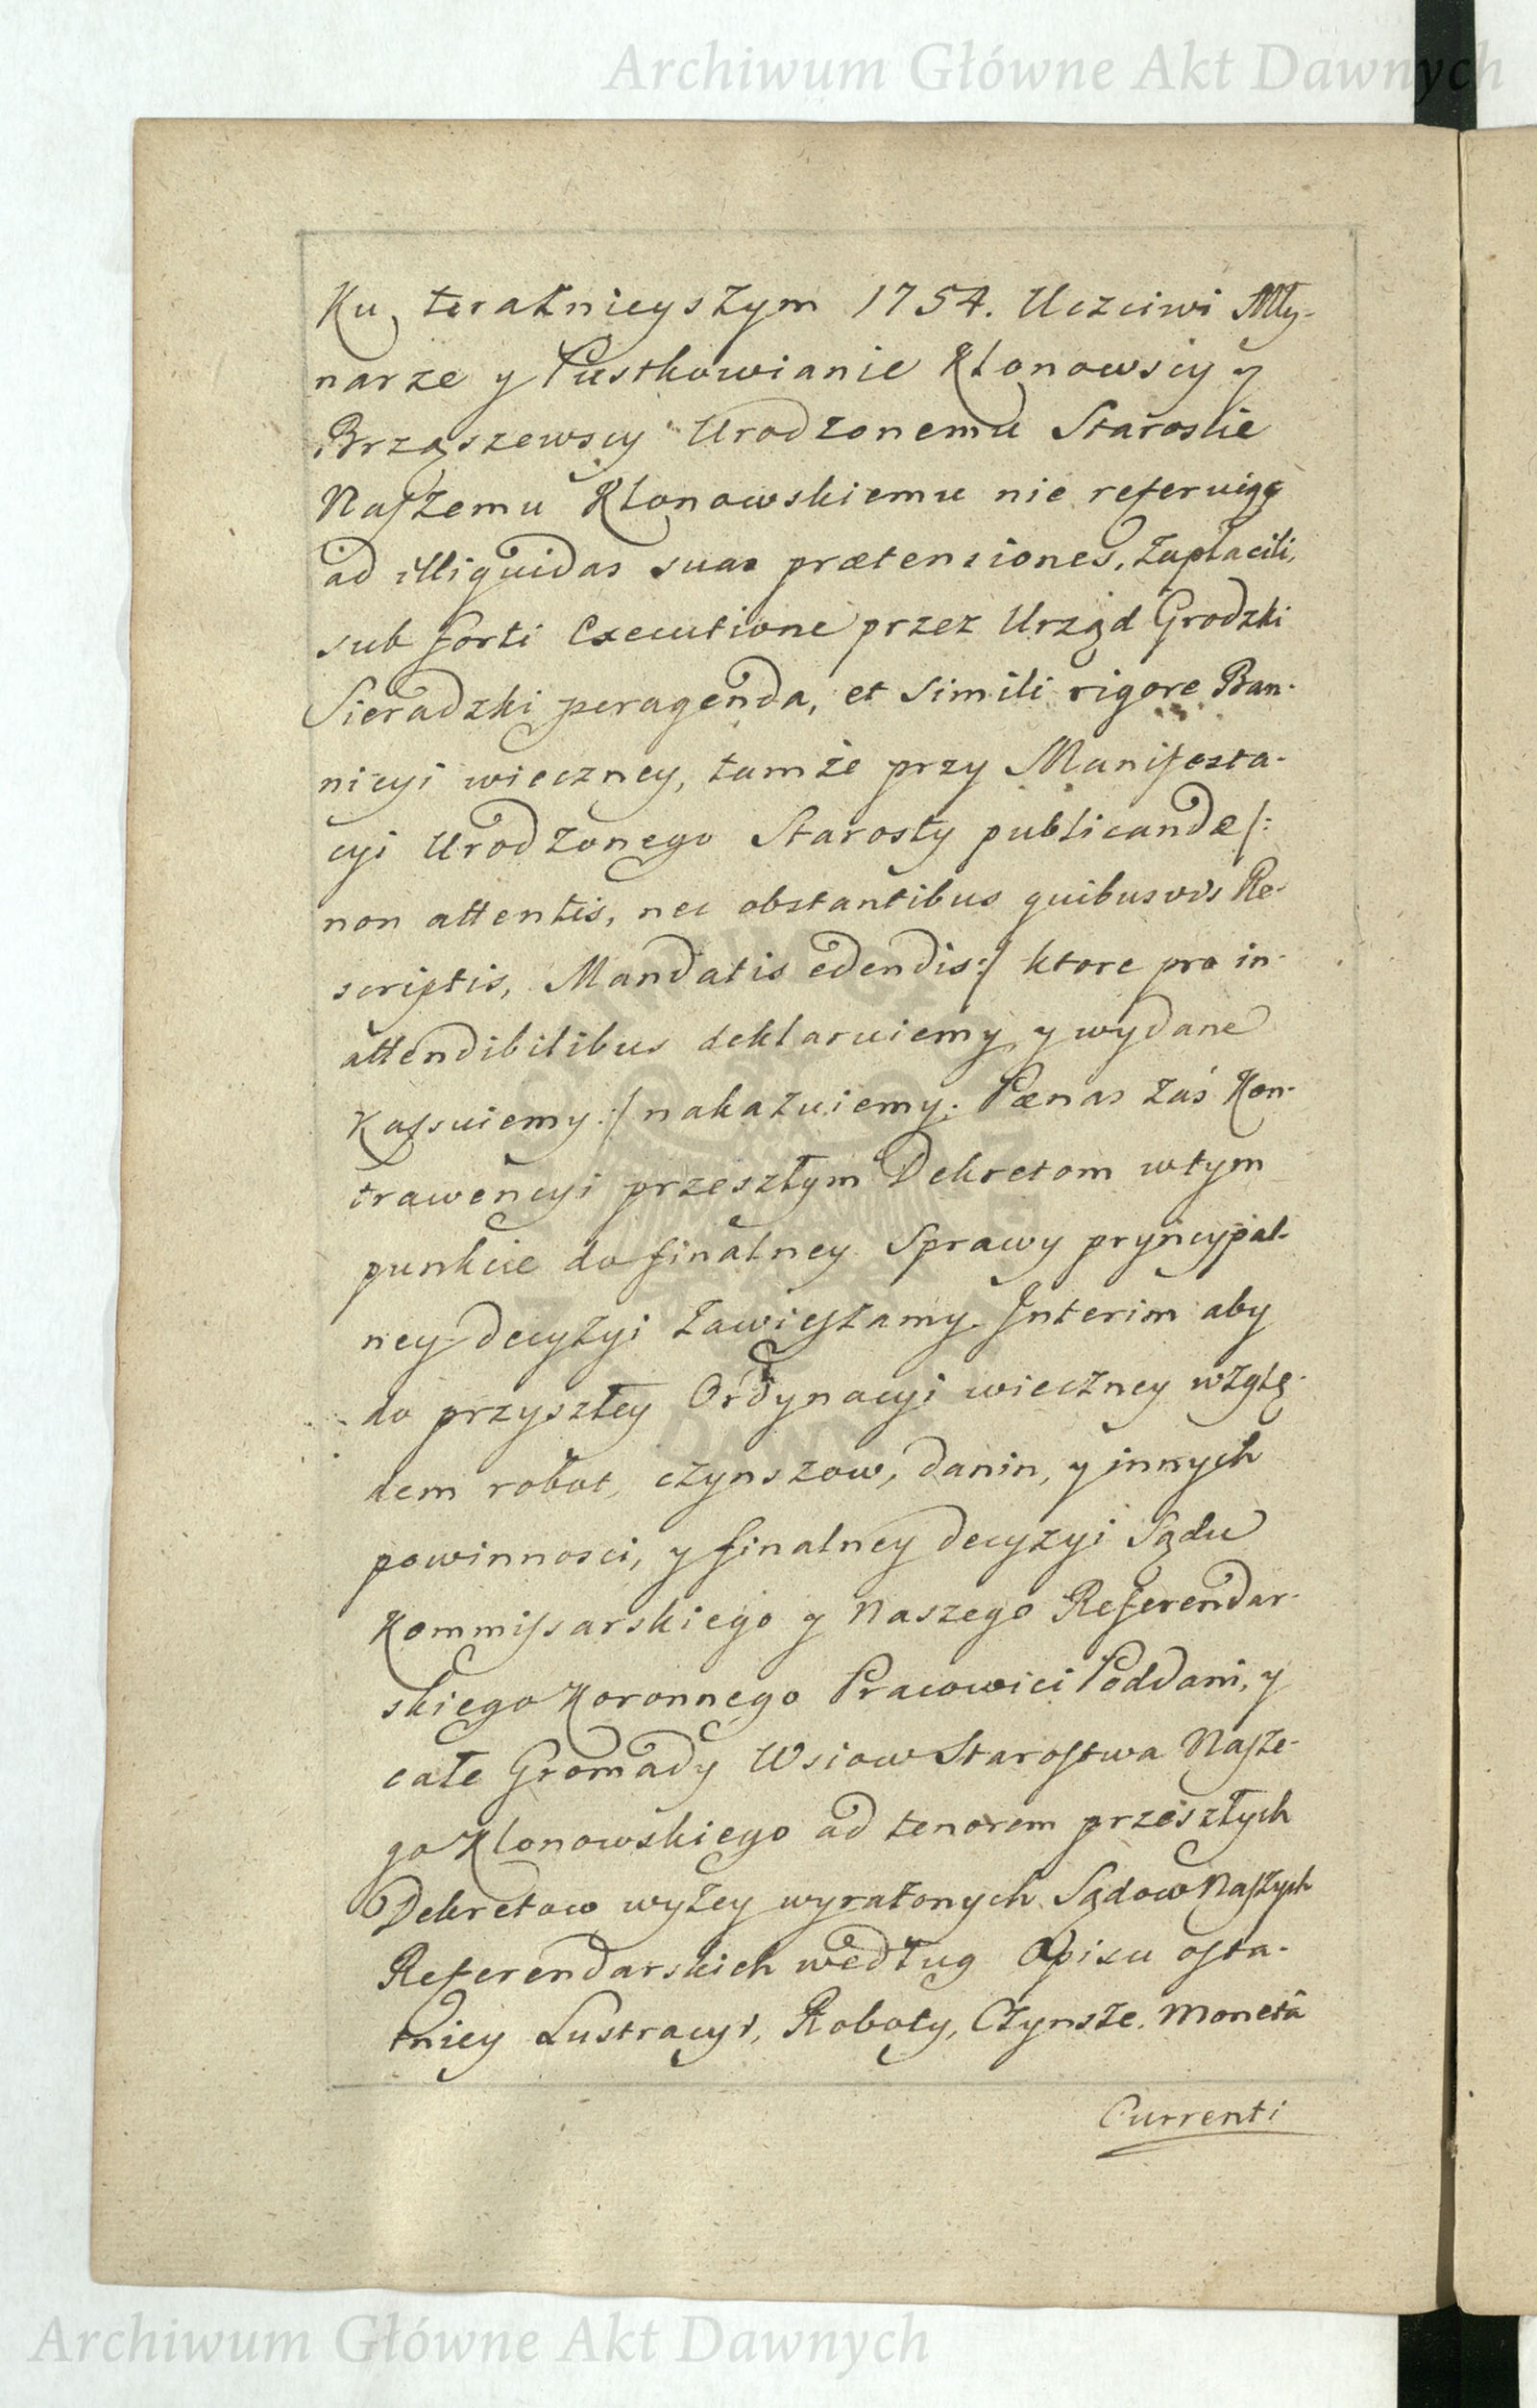 Archiwum Główne Akt Dawnych
Ku terażnieyszym 1754. Uczciwi Mły-
narze y Pustkowianie Klonowscy y
Brząszewscy Urodzonemu Staroscie
Naszemu Klonowskiemu nie referuiąc
ad illiquidas suas prætensiones, zapłacili,
sub forti Executione przez Urząd Grodzki
Sieradzki peragenda, et simili rigore Ban-
nicyi wieczney, tamże przy Manifesta-
cyi Urodzonego Starosty publicandæ/:
non attentis, nec obstantibus quibusvis Re-
scriptis, Mandatis edendis:/ ktore pro in-
attendibilibus deklaruiemy, y wydane
Kassuiemy:/ nakazuiemy; Pænas zaś Kon-
trawencyi przeszłym Dekretom wtym
punkcie do finalney Sprawy pryncypal-
ney decyzyi zawieszamy. Interim aby
do przyszłey Ordynacyi wieczney wzglę-
dem robot, czynszow, danin, y innych
powinnosci, y finalney decyzyi Sądu
Kommissarskiego y Naszego Referendar-
skiego Koronnego Pracowici Poddani, y
całe Gromady Wsiow Starostwa Nasze-
go Klonowskiego ad tenorem przeszłych
Dekretow wyżey wyrażonych Sądow Naszych
Referendarskich według Opisu osta-
tniey Lustracyi, Roboty, Czynsze, monetâ
Currenti
Archiwum Główne Akt Dawnych